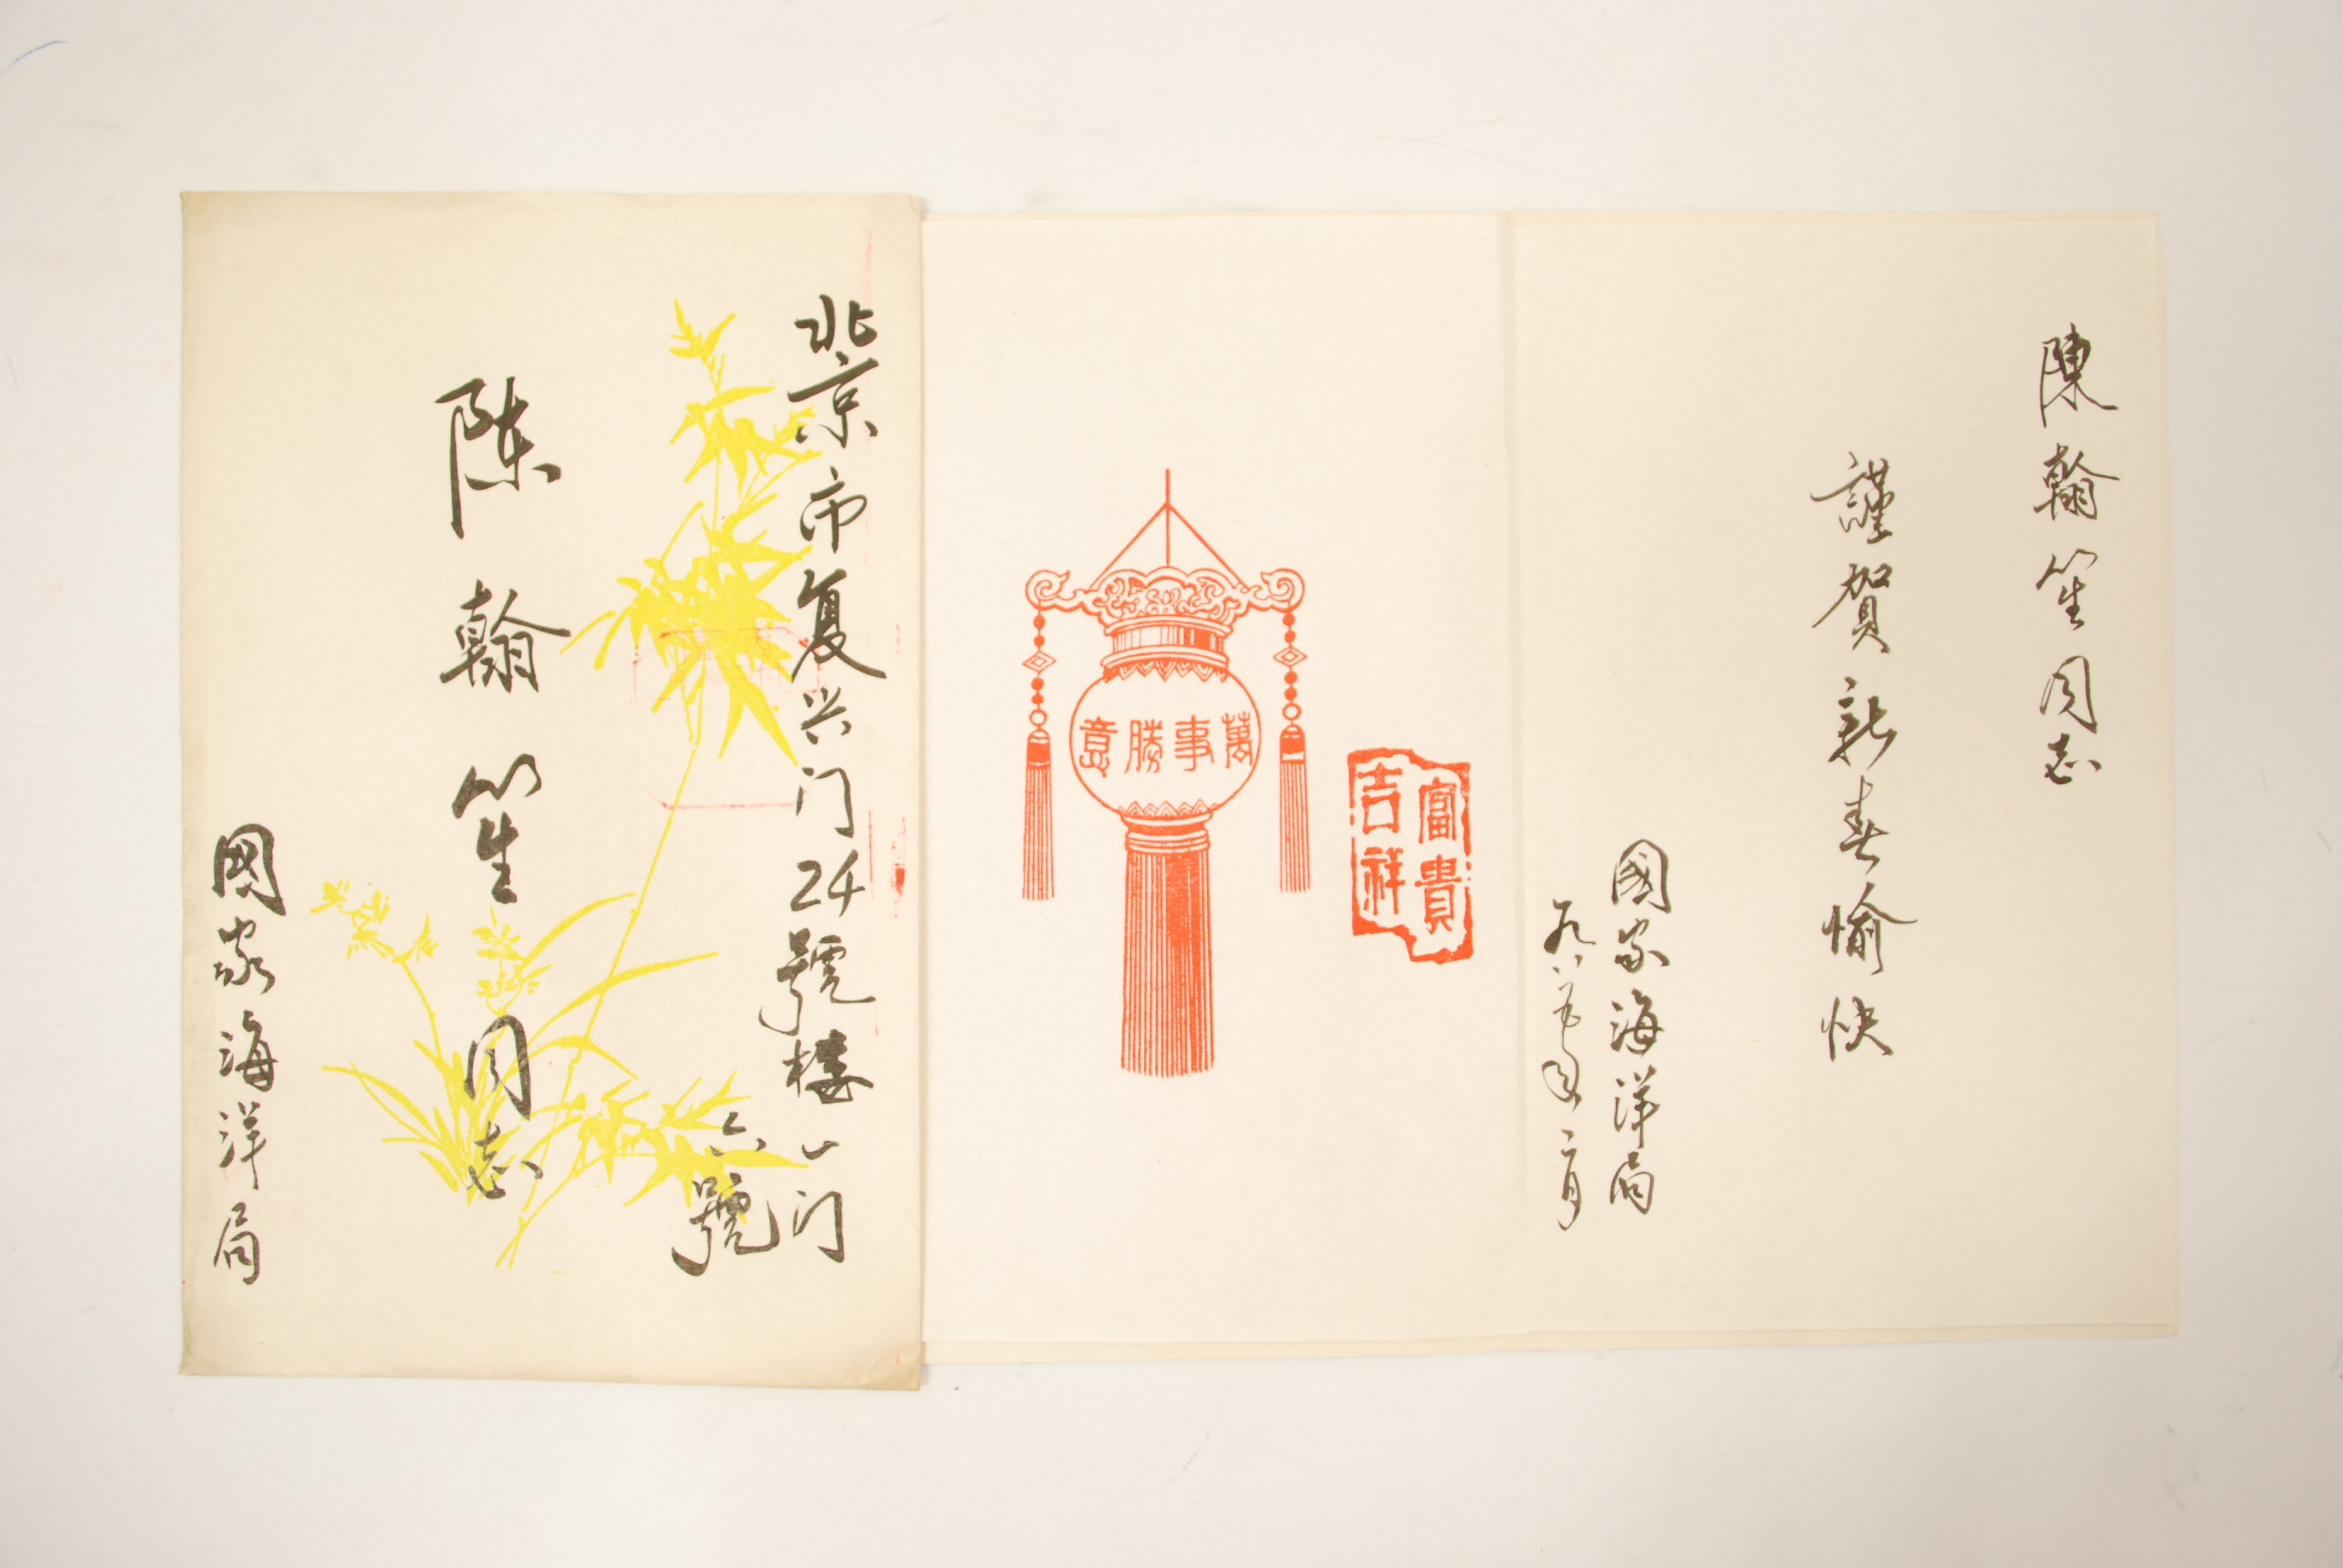 北京市复兴门24號楼一门
六號
陈翰笙同志
國家海洋局
萬事勝意
富貴
吉祥
陳翰笙同志
謹賀新春愉快
國家海洋局
一九八五年二月